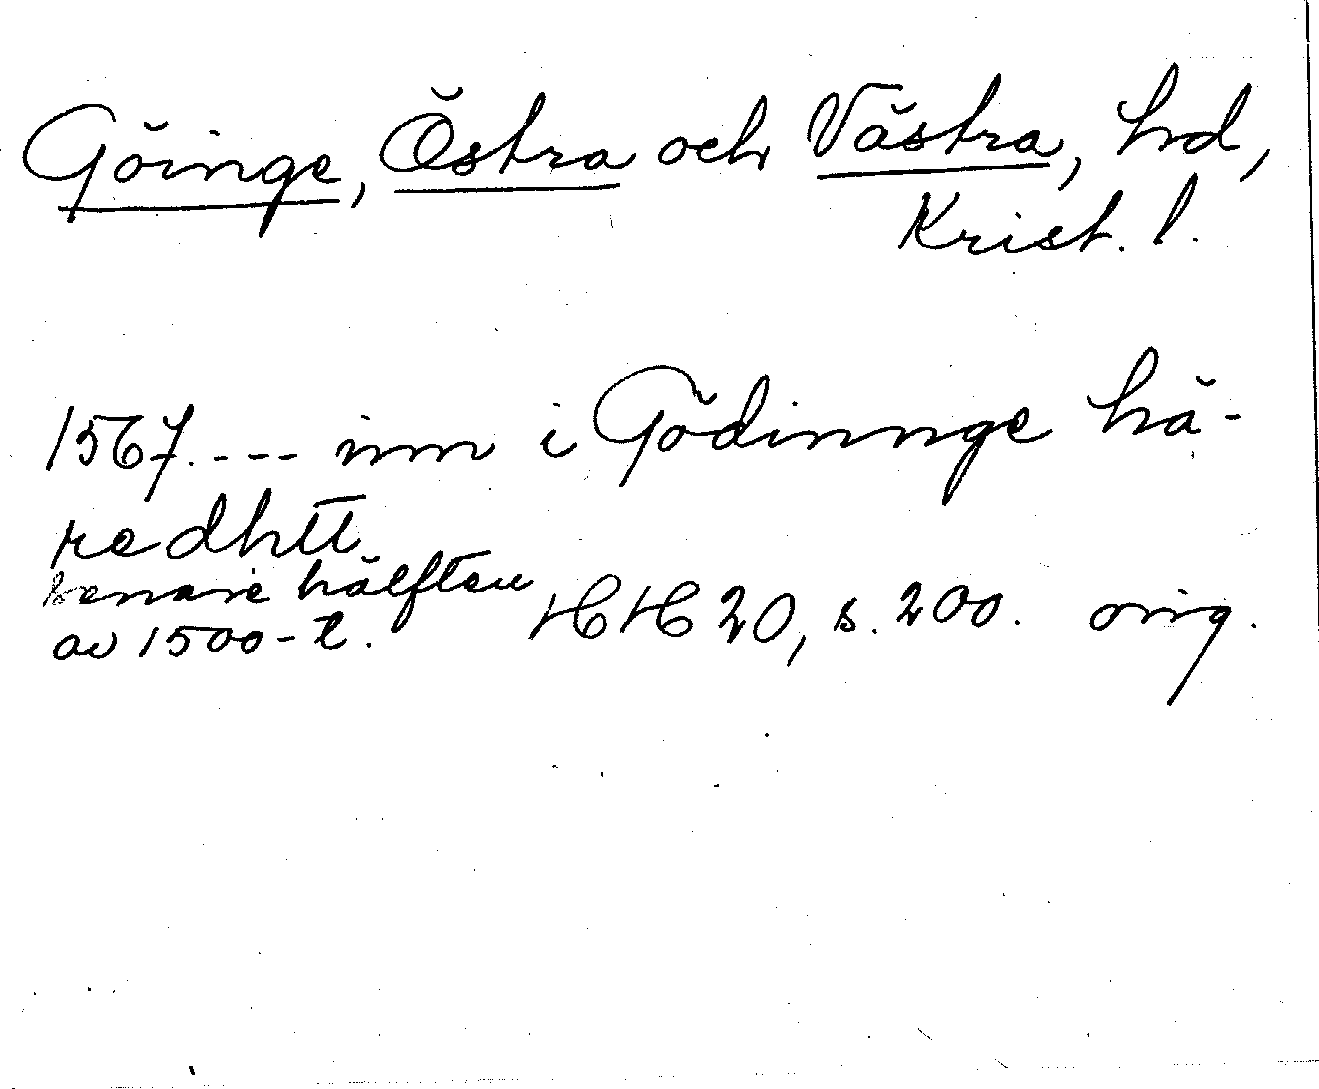 Göinge, Östra och Västra, hd,
Krist. l.
1567.---- inn i Gödinnge hä-
redhtt
senare hälften
av 1500-t. HH 20, s. 200. orig.